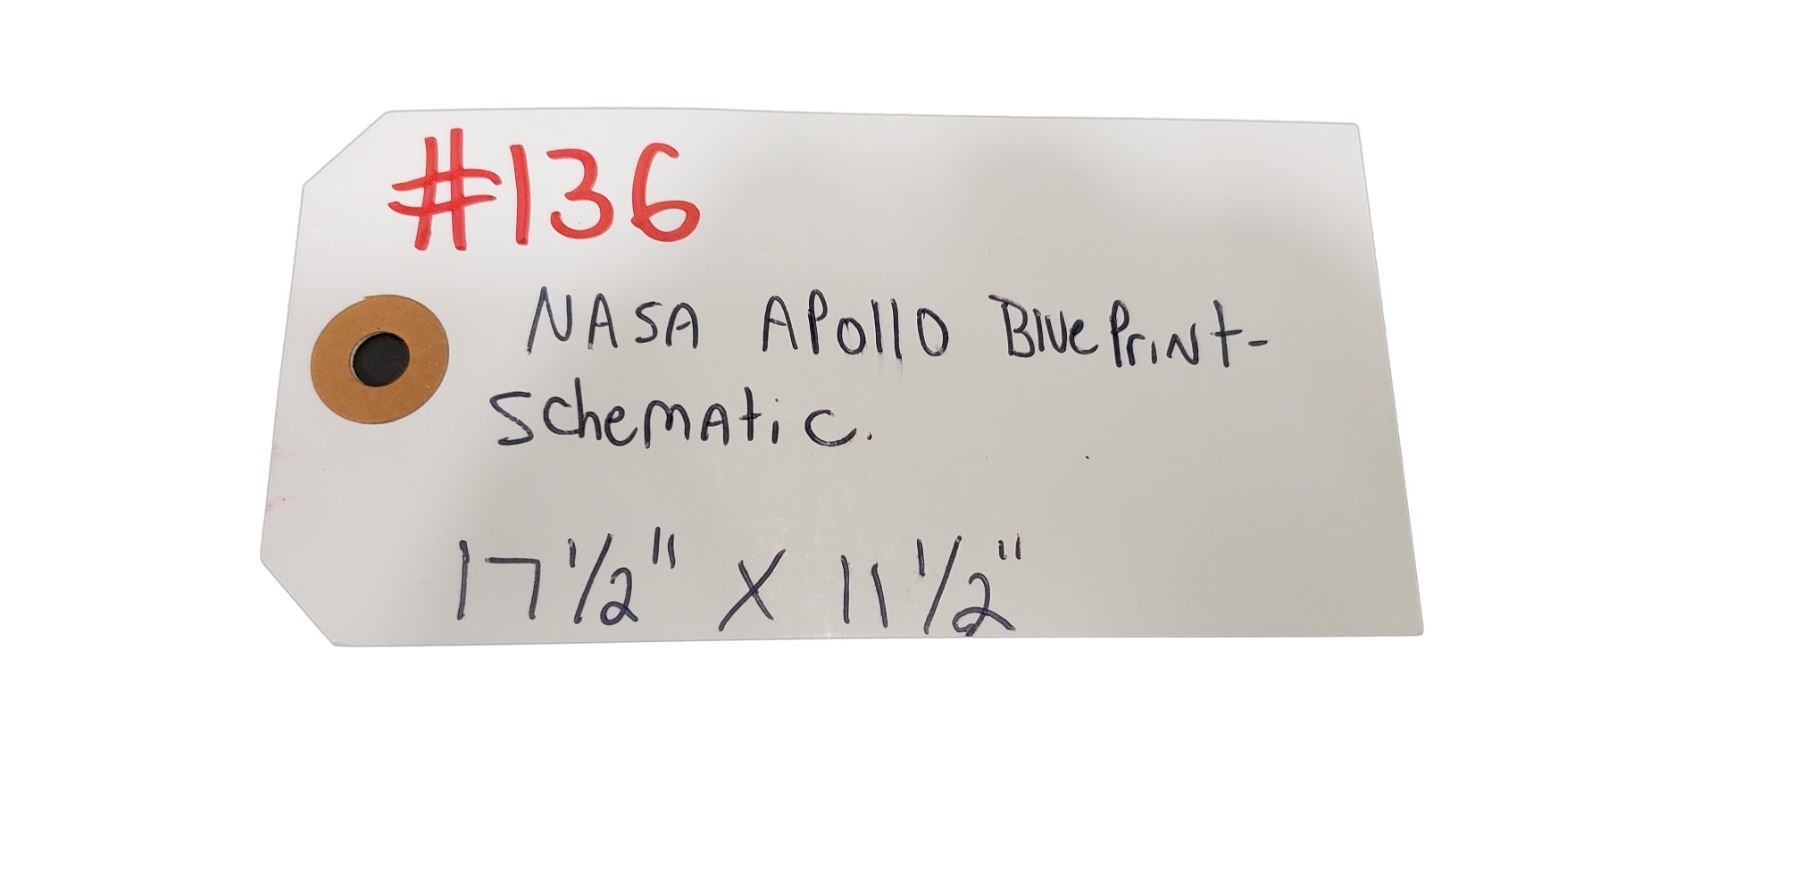 #136
NASA APollO BluePriNt-
SchemAtic.
17 1/2" X 11 1/2"